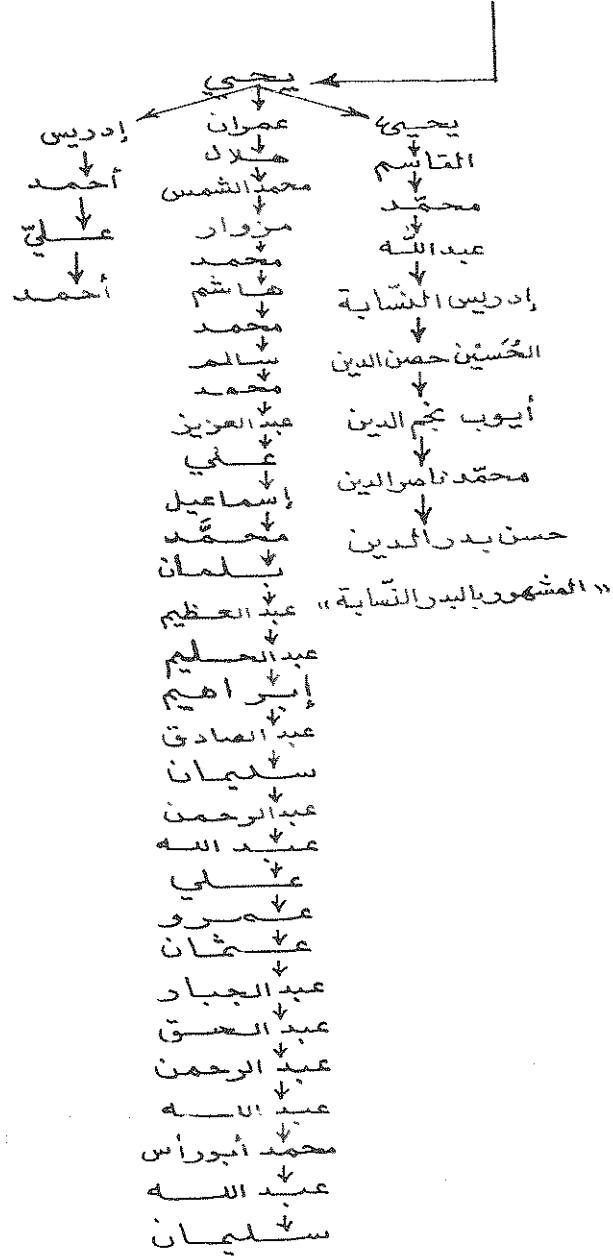 يحيي
يحيى
القاسم
محمّد
عبدالله
إدريس النسّابة
الحُسَيْن حصن الدين
أيوب نجم الدين
محمّد ناصر الدين
حسن بدر الدين
«المشهور بالبدر النسّابة»
عمران
هلال
محمد الشمس
مزوار
محمد
هاشم
محمد
سالم
محمد
عبد العزيز
علي
إسماعيل
محمَّد
عبد العظيم
عبد الحليم
إبراهيم
عبد الصادق
سليمان
عبد الرحمن
عبد الله
علي
عمرو
عثمان
عبد الجبار
عبد الحق
عبد الرحمن
عبد الله
محمد أبو رأس
عبد الله
سليمان
إدريس
أحمد
عليّ
أحمد